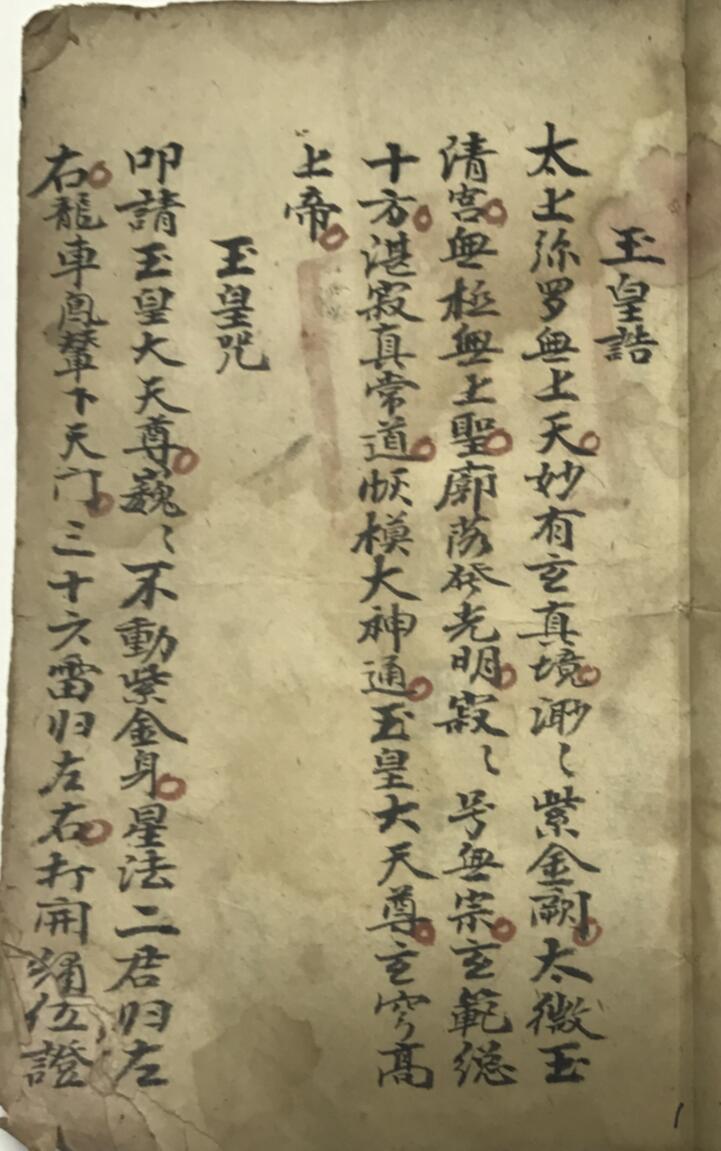 玉皇誥
太上弥罗無上天妙有玄真境渺〻紫金阙太微玉
清宮無極無上聖廓落發光明寂〻号無宗玄範総
十方湛寂真常道恢模大神通玉皇大天尊玄穹髙
上帝
玉皇咒
叩請玉皇大天尊巍〻不動紫金身星法二君归左
右龍車鳯輦下天门三十六雷归左右打開 伍證